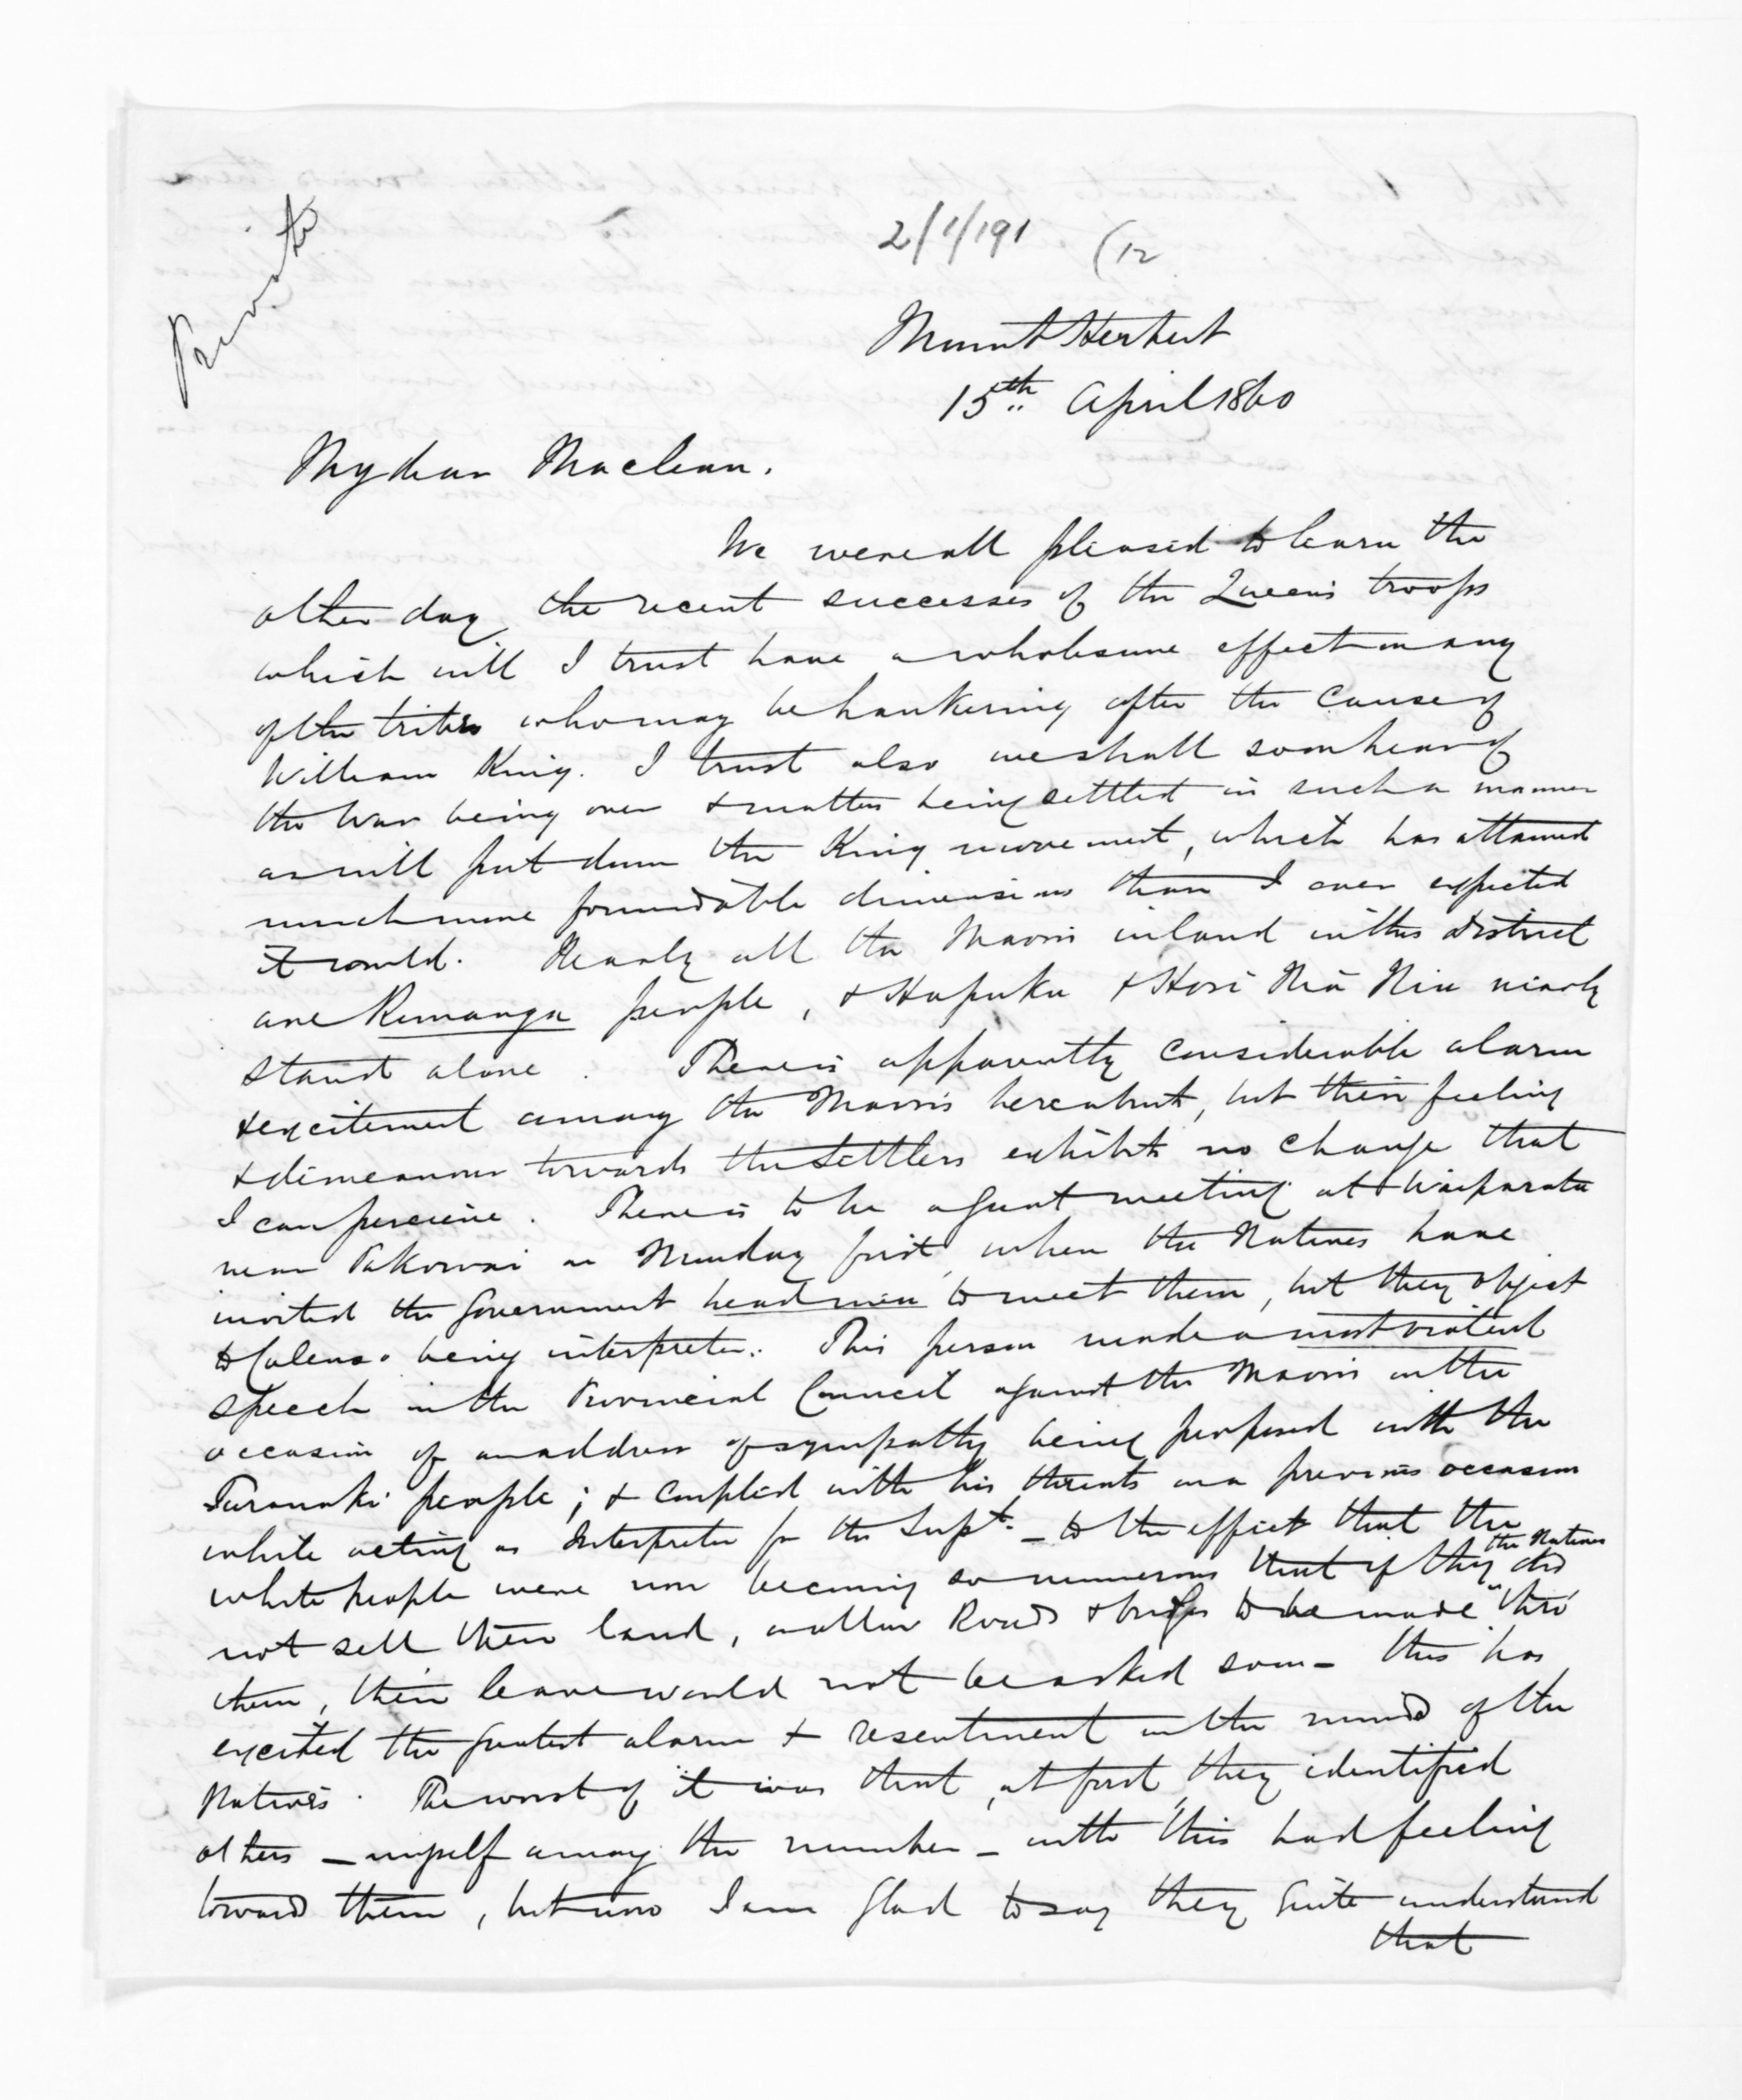 Private
2/1/191 (12
Mount Herbert
15th April 1860
My dear Maclean.
We were all pleased to learn the
other day the recent successes of the Queen's troops
which will I trust have a wholesome effect on any
of the tribes who may be hankering after the cause of
William King. I trust also we shall soon hear of
the war being over & matters being settled in such a manner
as will put down the King movement, which has attained
much more formidable dimensions than I ever expected
it would. Nearly all the Maoris inland in this District
are Runanga people, & Hapuku & Hori Nia Nia nearly
stand alone. There is apparently considerable alarm
& excitement among the Maoris hereabouts, but their feeling
& demeanour towards the Settlers exhibits no change that
I can perceive. There is to be a great meeting at Waiparata
near Pakowai on Monday first, when the Natives have
invited the Government head men to meet them, but they object
to Colenso being interpreter. This person made a most violent
speech in the Provincial Council against the Maoris on the
occasion of an address of sympathy being proposed with the
Taranaki people; & coupled with his threats on a previous occasion
while acting as Interpreter for the Supt. - to the effect that the
white people were now becoming so numerous that if they the Natives did
not sell their land, or allow Roads & bridges to be made "thro'
them, their leave would not be asked soon - this has
excited the greatest alarm & resentment in the minds of the
Natives. The worst of it was that, at first, they identified
others - myself among the number - with this bad feeling
towards them, but now I am glad to say they quite understand
that